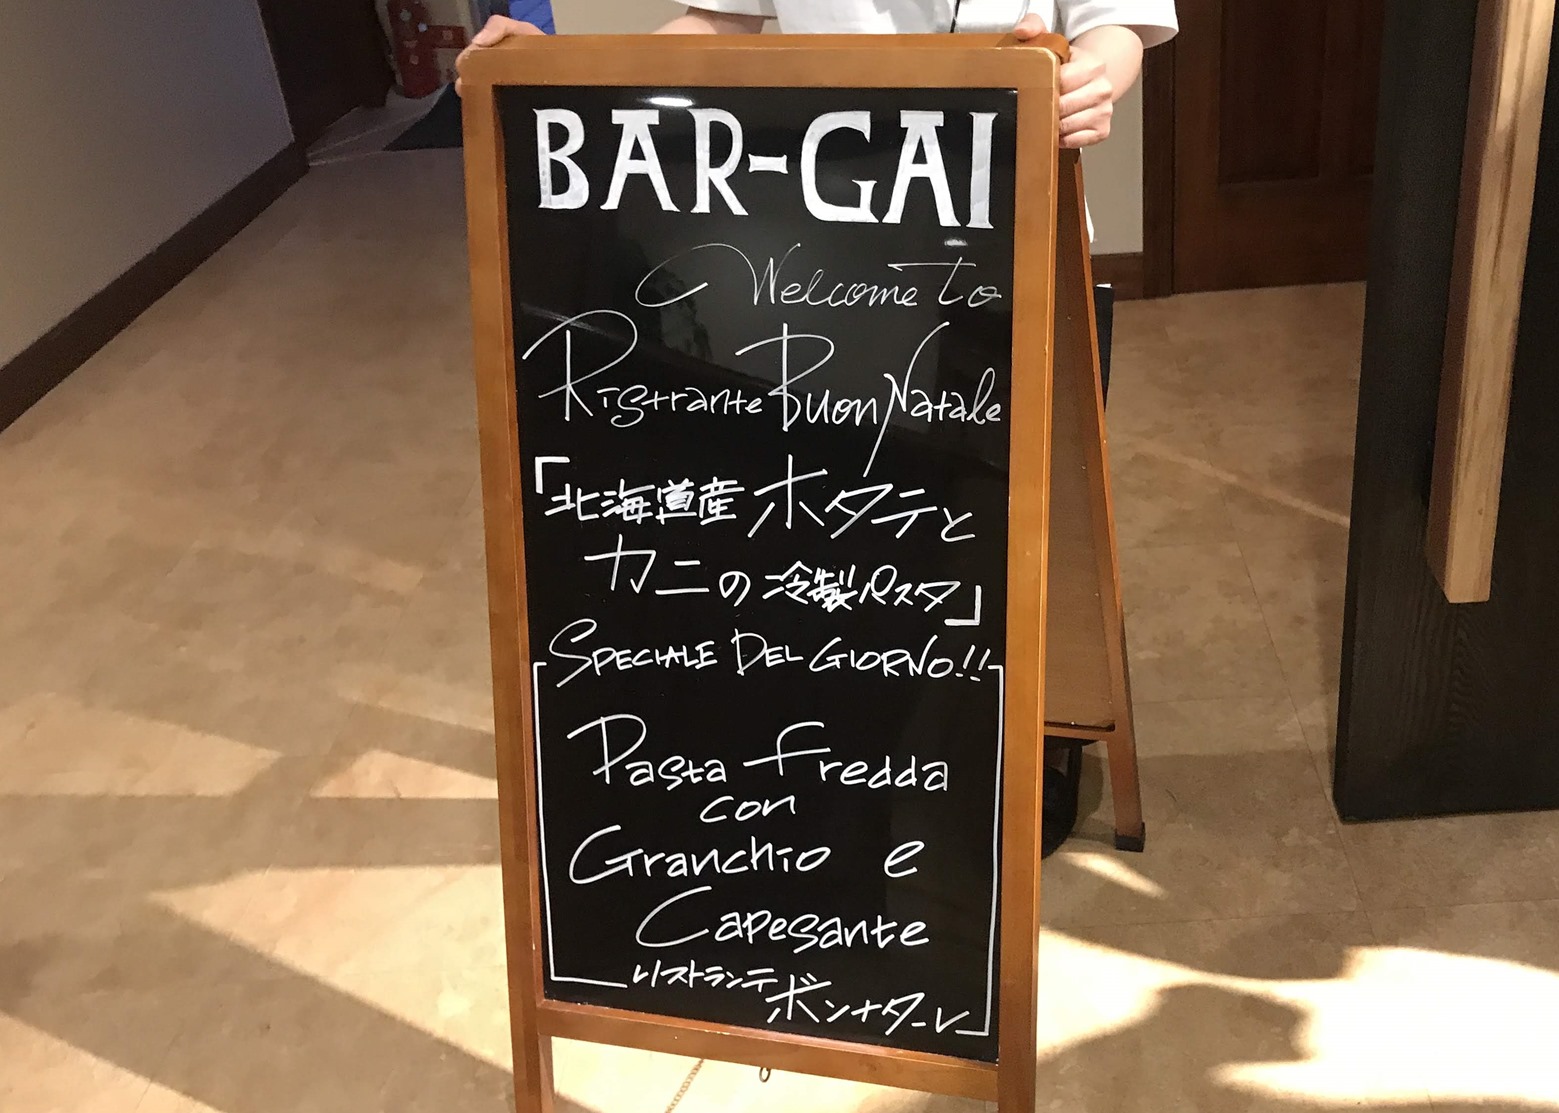 BAR-GAI
Welcome to
Ristrante Buon Natale
「北海道産 ホタテと
カニの冷製パスタ」
SPECIALE DEL GIORNO!!
Pasta Fredda
con
Granchio e
Capesante
リストランテ ボンナターレ